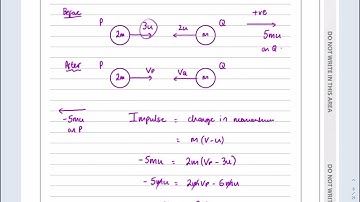 Before P 3u 2u Q +ve
2m m 5mu
on Q
After P Q
2m Vp VQ m
-5mu
on P
Impulse = change in momentum
= m(v-u)
-5mu = 2m(Vp - 3u)
-5mu = 2mVp - 6mu
DO NOT WRITE IN THIS AREA
DO NOT WRITE